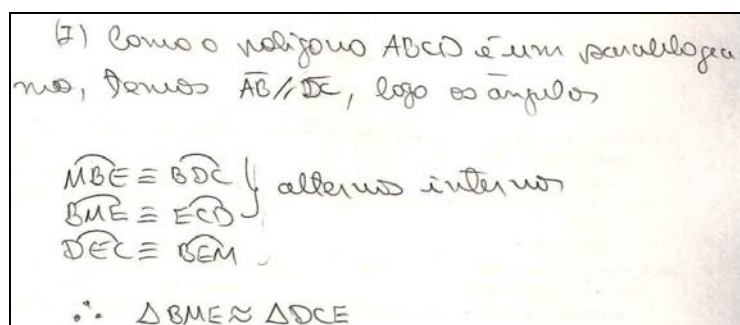 (I) Como o polígono ABCD é um paralelogra
mo, temos AB // DC, logo os ângulos
MBE ≡ BDC } alternos internos
BME ≡ ECD
DEC ≡ BEM
∴ ΔBME ≈ ΔDCE